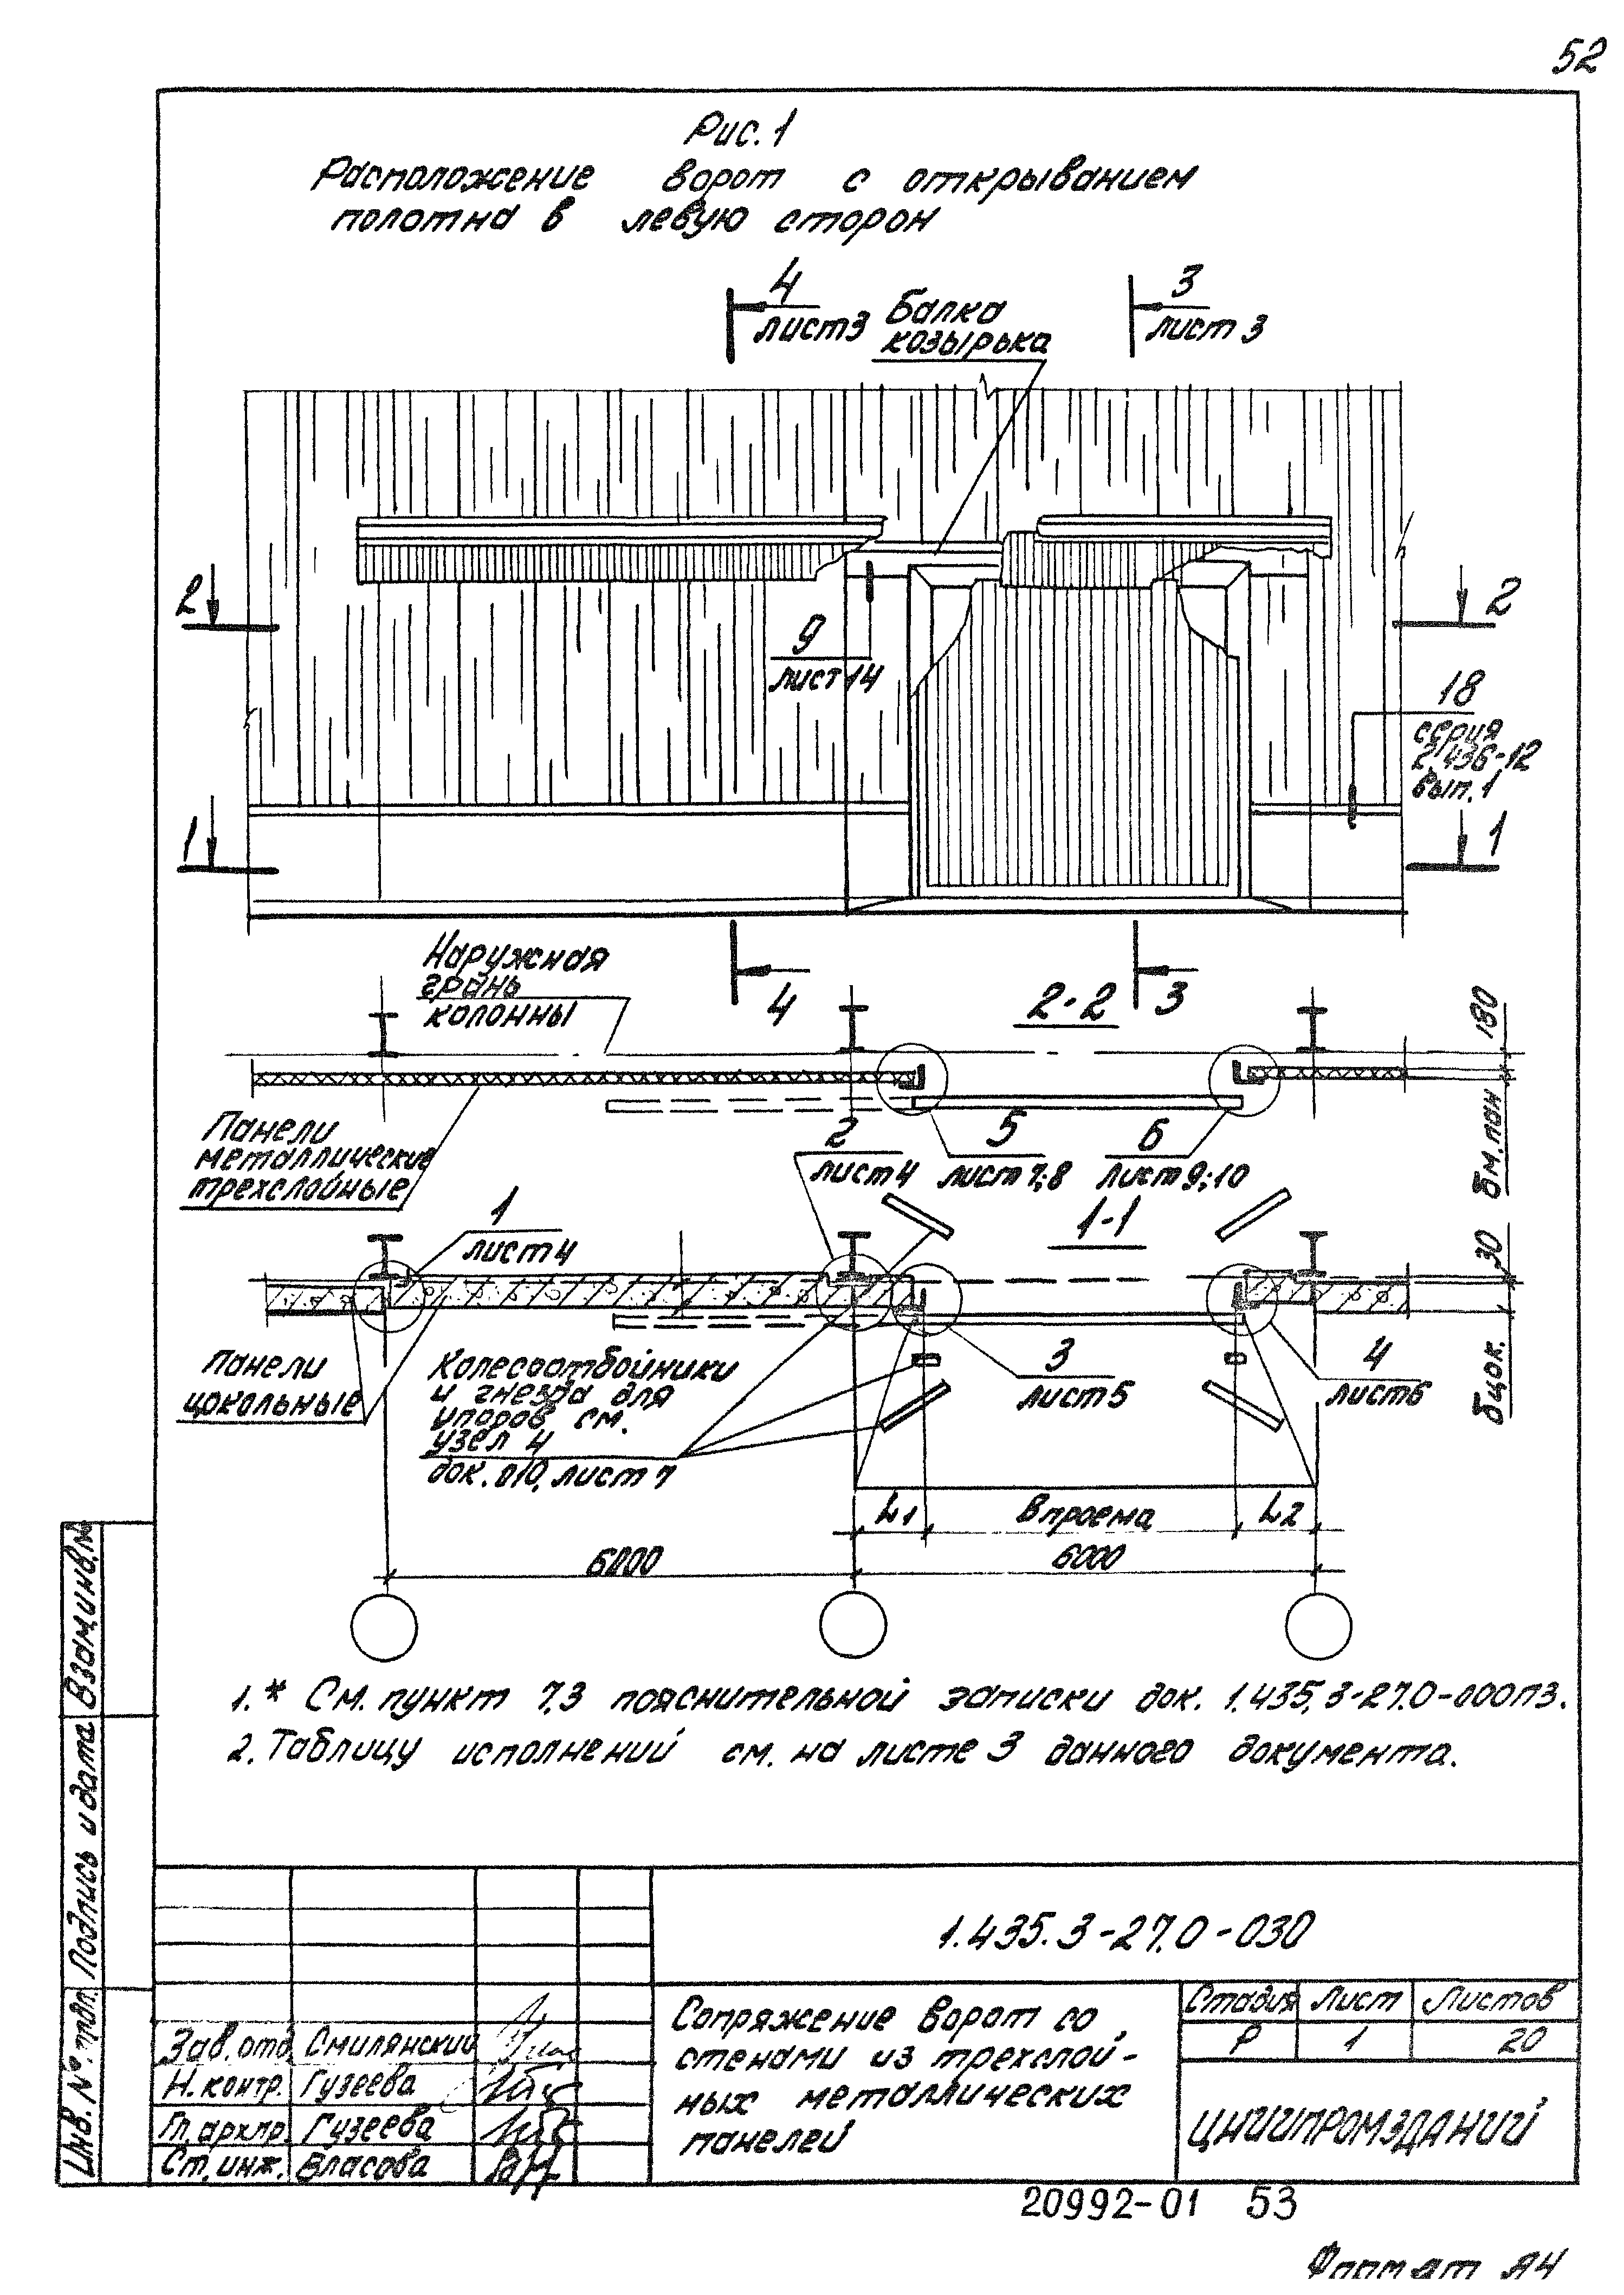 52
Рис. 1
Расположение ворот с открыванием
полотна в левую сторон
4
лист 3
Балка
козырька
3
лист 3
2
2
9
лист 14
18
серия
2.436-12
вып. 1
1
1
Наружная
грань
колонны
4
2-2
3
180
Панели
металлические
трехслойные
2
лист 4
5
лист 7; 8
6
лист 9; 10
бм. пан
1
лист 4
1-1
30
Панели
цокольные
Колесоотбойники
и гнезда для
упоров см.
узел 4
док. 010, лист 7
3
лист 5
4
лист 6
бцок.
L1
В проема
L2
6000
6000
1.* См. пункт 7.3 пояснительной записки док. 1.435.3-27.0-000ПЗ.
2. Таблицу исполнений см. на листе 3 данного документа.
Взам.инв.№
Подпись и дата
Инв. № подл.
1.435.3-27.0-030
Зав. отд. Смилянский
Н. контр. Гузеева
Гл. арх.пр. Гузеева
Ст. инж. Власова
Сопряжение ворот со
стенами из трехслой-
ных металлических
панелей
Стадия Лист Листов
Р 1 20
ЦНИИПРОМЗДАНИЙ
20992-01 53
Формат А4